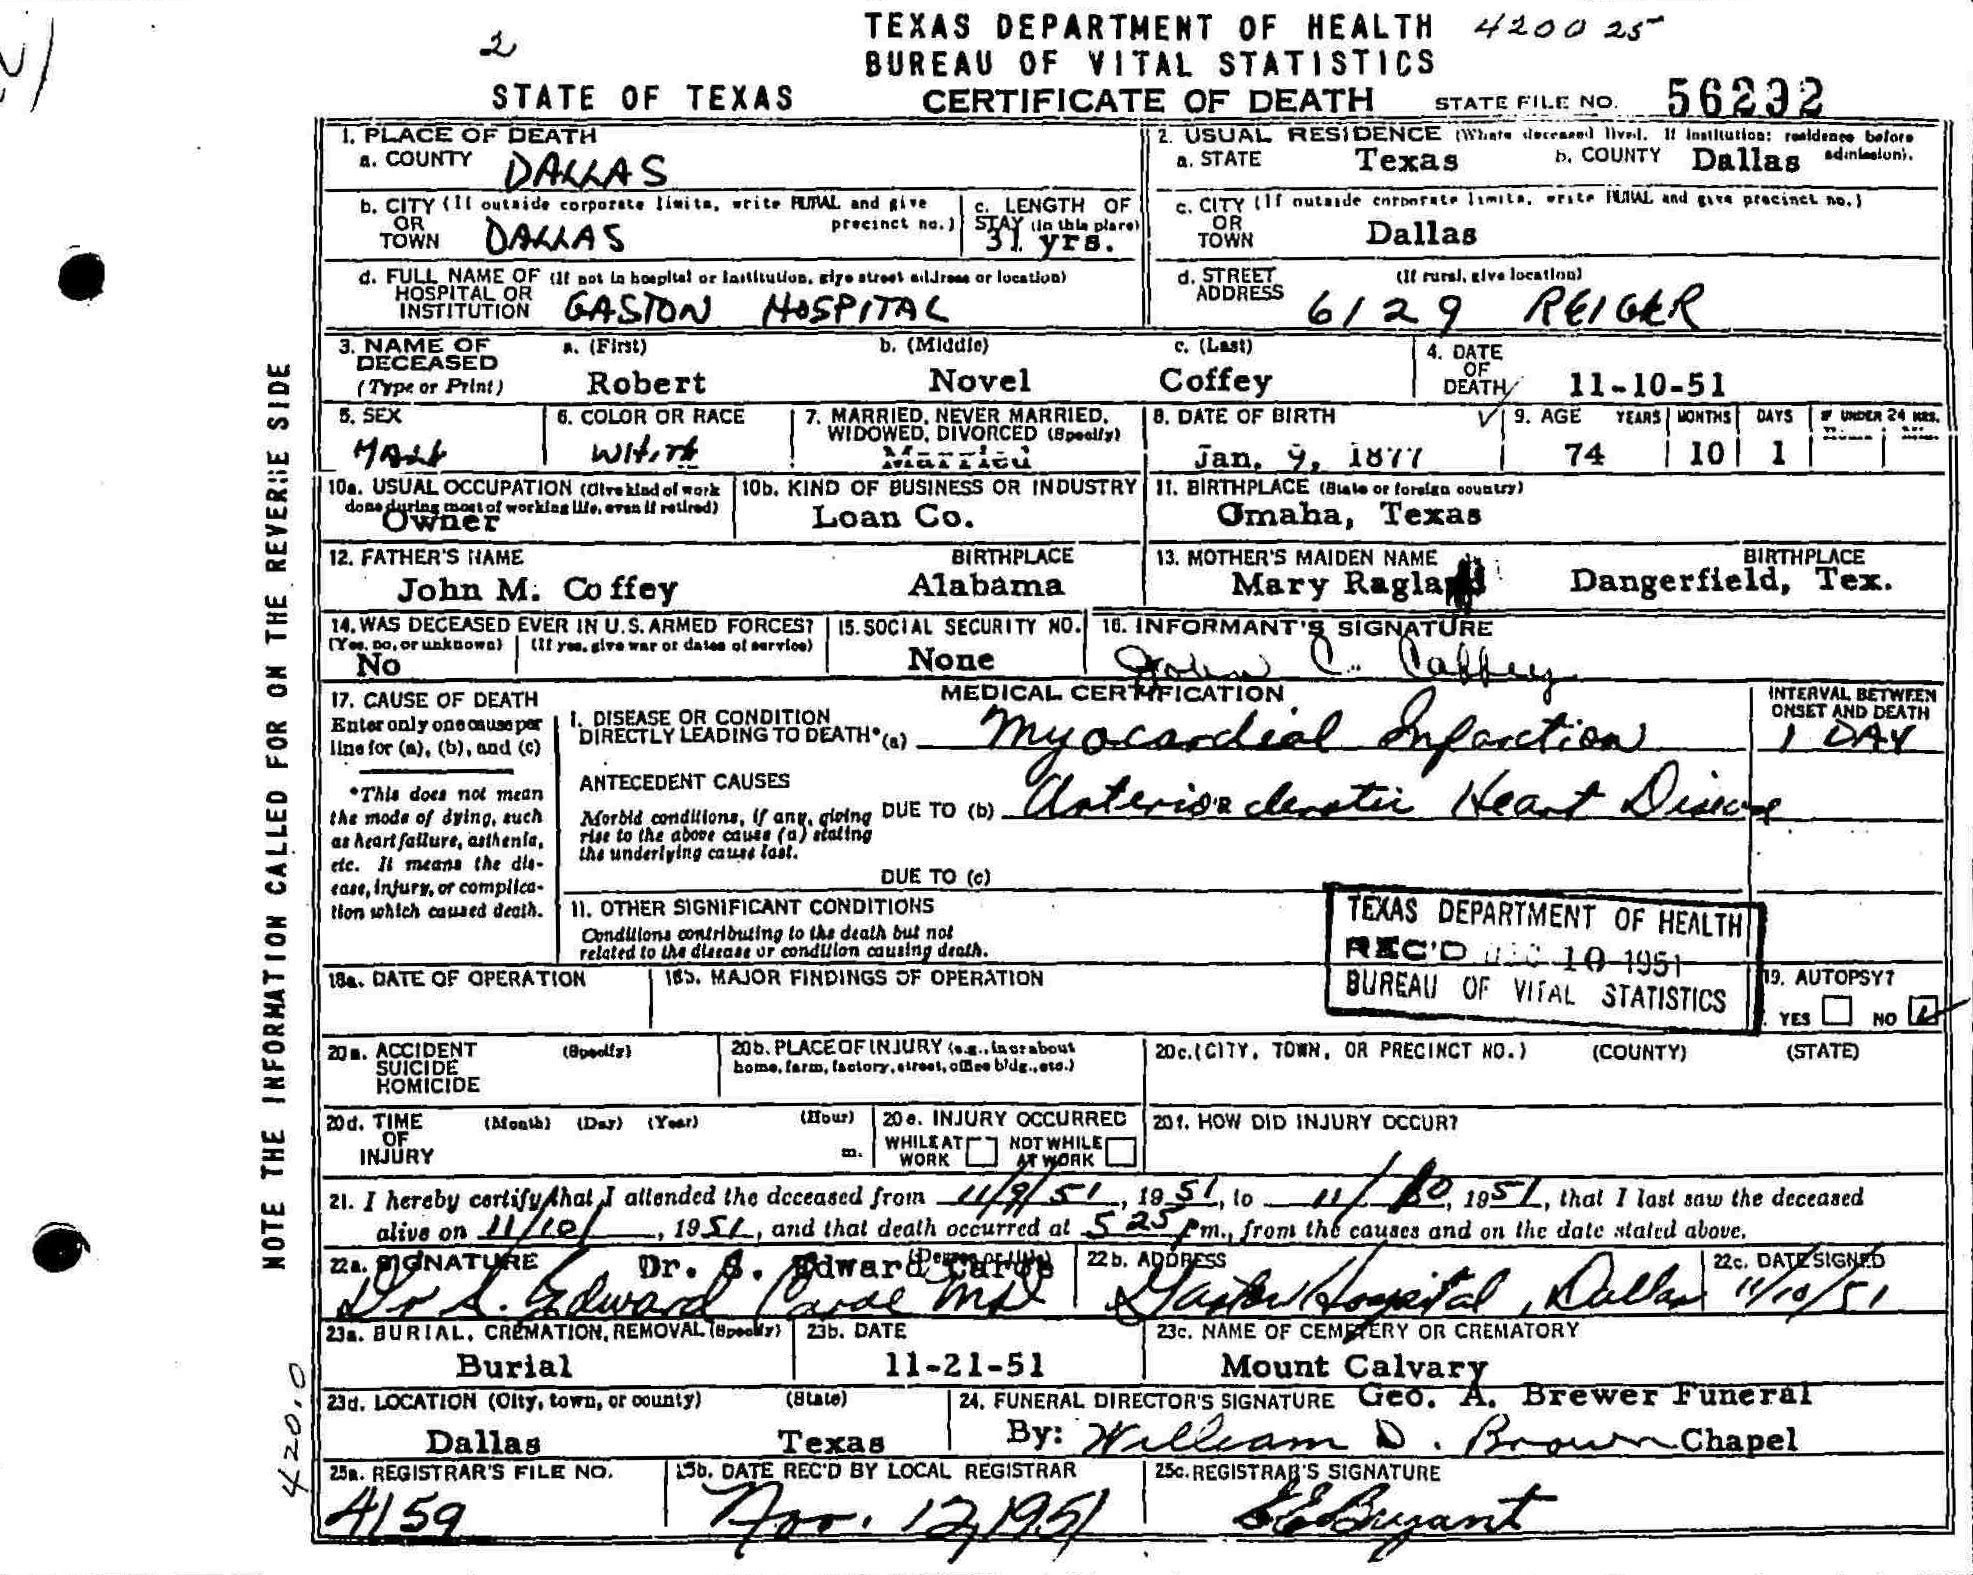 2
TEXAS DEPARTMENT OF HEALTH 4200 25
BUREAU OF VITAL STATISTICS
STATE OF TEXAS CERTIFICATE OF DEATH STATE FILE NO. 56292
NOTE THE INFORMATION CALLED FOR ON THE REVERSE SIDE
420.0
1. PLACE OF DEATH
a. COUNTY DALLAS
2. USUAL RESIDENCE (Where deceased lived. If institution: residence before admission).
a. STATE Texas b. COUNTY Dallas
b. CITY (If outside corporate limits, write RURAL and give precinct no.)
OR
TOWN DALLAS
c. LENGTH OF
STAY (in this place)
31 yrs.
c. CITY (If outside corporate limits, write RURAL and give precinct no.)
OR
TOWN Dallas
d. FULL NAME OF (If not in hospital or institution, give street address or location)
HOSPITAL OR
INSTITUTION GASTON HOSPITAL
d. STREET (If rural, give location)
ADDRESS 6129 REIGER
3. NAME OF DECEASED (Type or Print)
a. (First) b. (Middle) c. (Last)
Robert Novel Coffey
4. DATE
OF
DEATH 11-10-51
5. SEX
MALE
6. COLOR OR RACE
WHITE
7. MARRIED, NEVER MARRIED,
WIDOWED, DIVORCED (Specify)
Married
8. DATE OF BIRTH
Jan. 9, 1877
9. AGE YEARS MONTHS DAYS IF UNDER 24 HRS.
74 10 1
10a. USUAL OCCUPATION (Give kind of work
done during most of working life, even if retired)
Owner
10b. KIND OF BUSINESS OR INDUSTRY
Loan Co.
11. BIRTHPLACE (State or foreign country)
Omaha, Texas
12. FATHER'S NAME BIRTHPLACE
John M. Coffey Alabama
13. MOTHER'S MAIDEN NAME BIRTHPLACE
Mary Ragland Dangerfield, Tex.
14. WAS DECEASED EVER IN U.S. ARMED FORCES?
(Yes, no, or unknown) (If yes, give war or dates of service)
No
15. SOCIAL SECURITY NO.
None
16. INFORMANT'S SIGNATURE
John C. Coffey
17. CAUSE OF DEATH
Enter only one cause per
line for (a), (b), and (c)
*This does not mean
the mode of dying, such
as heart failure, asthenia,
etc. It means the dis-
ease, injury, or complica-
tion which caused death.
MEDICAL CERTIFICATION
INTERVAL BETWEEN
ONSET AND DEATH
I. DISEASE OR CONDITION
DIRECTLY LEADING TO DEATH* (a) Myocardial Infarction 1 DAY
ANTECEDENT CAUSES
Morbid conditions, if any, giving
rise to the above cause (a) stating
the underlying cause last.
DUE TO (b) Arteriosclerotic Heart Disease
DUE TO (c)
11. OTHER SIGNIFICANT CONDITIONS
Conditions contributing to the death but not
related to the disease or condition causing death.
TEXAS DEPARTMENT OF HEALTH
REC'D DEC 10 1951
BUREAU OF VITAL STATISTICS
18a. DATE OF OPERATION
18b. MAJOR FINDINGS OF OPERATION
19. AUTOPSY?
YES NO
20a. ACCIDENT (Specify)
SUICIDE
HOMICIDE
20b. PLACE OF INJURY (e.g., in or about
home, farm, factory, street, office bldg., etc.)
20c. (CITY, TOWN, OR PRECINCT NO.) (COUNTY) (STATE)
20d. TIME (Month) (Day) (Year) (Hour)
OF
INJURY m.
20e. INJURY OCCURRED
WHILE AT WORK NOT WHILE AT WORK
20f. HOW DID INJURY OCCUR?
21. I hereby certify that I attended the deceased from 11/9/51, 1951, to 11/10, 1951, that I last saw the deceased
alive on 11/10/, 1951, and that death occurred at 5 25 pm., from the causes and on the date stated above.
22a. SIGNATURE (Degree or title)
Dr. S. Edward
Dr S. Edward MD
22b. ADDRESS
Gaston Hospital, Dallas
22c. DATE SIGNED
11/10/51
23a. BURIAL, CREMATION, REMOVAL (Specify)
Burial
23b. DATE
11-21-51
23c. NAME OF CEMETERY OR CREMATORY
Mount Calvary
23d. LOCATION (City, town, or county) (State)
Dallas Texas
24. FUNERAL DIRECTOR'S SIGNATURE Geo. A. Brewer Funeral
By: William D. Brown Chapel
25a. REGISTRAR'S FILE NO.
4159
25b. DATE REC'D BY LOCAL REGISTRAR
Nov. 12, 1951
25c. REGISTRAR'S SIGNATURE
E E Bryant